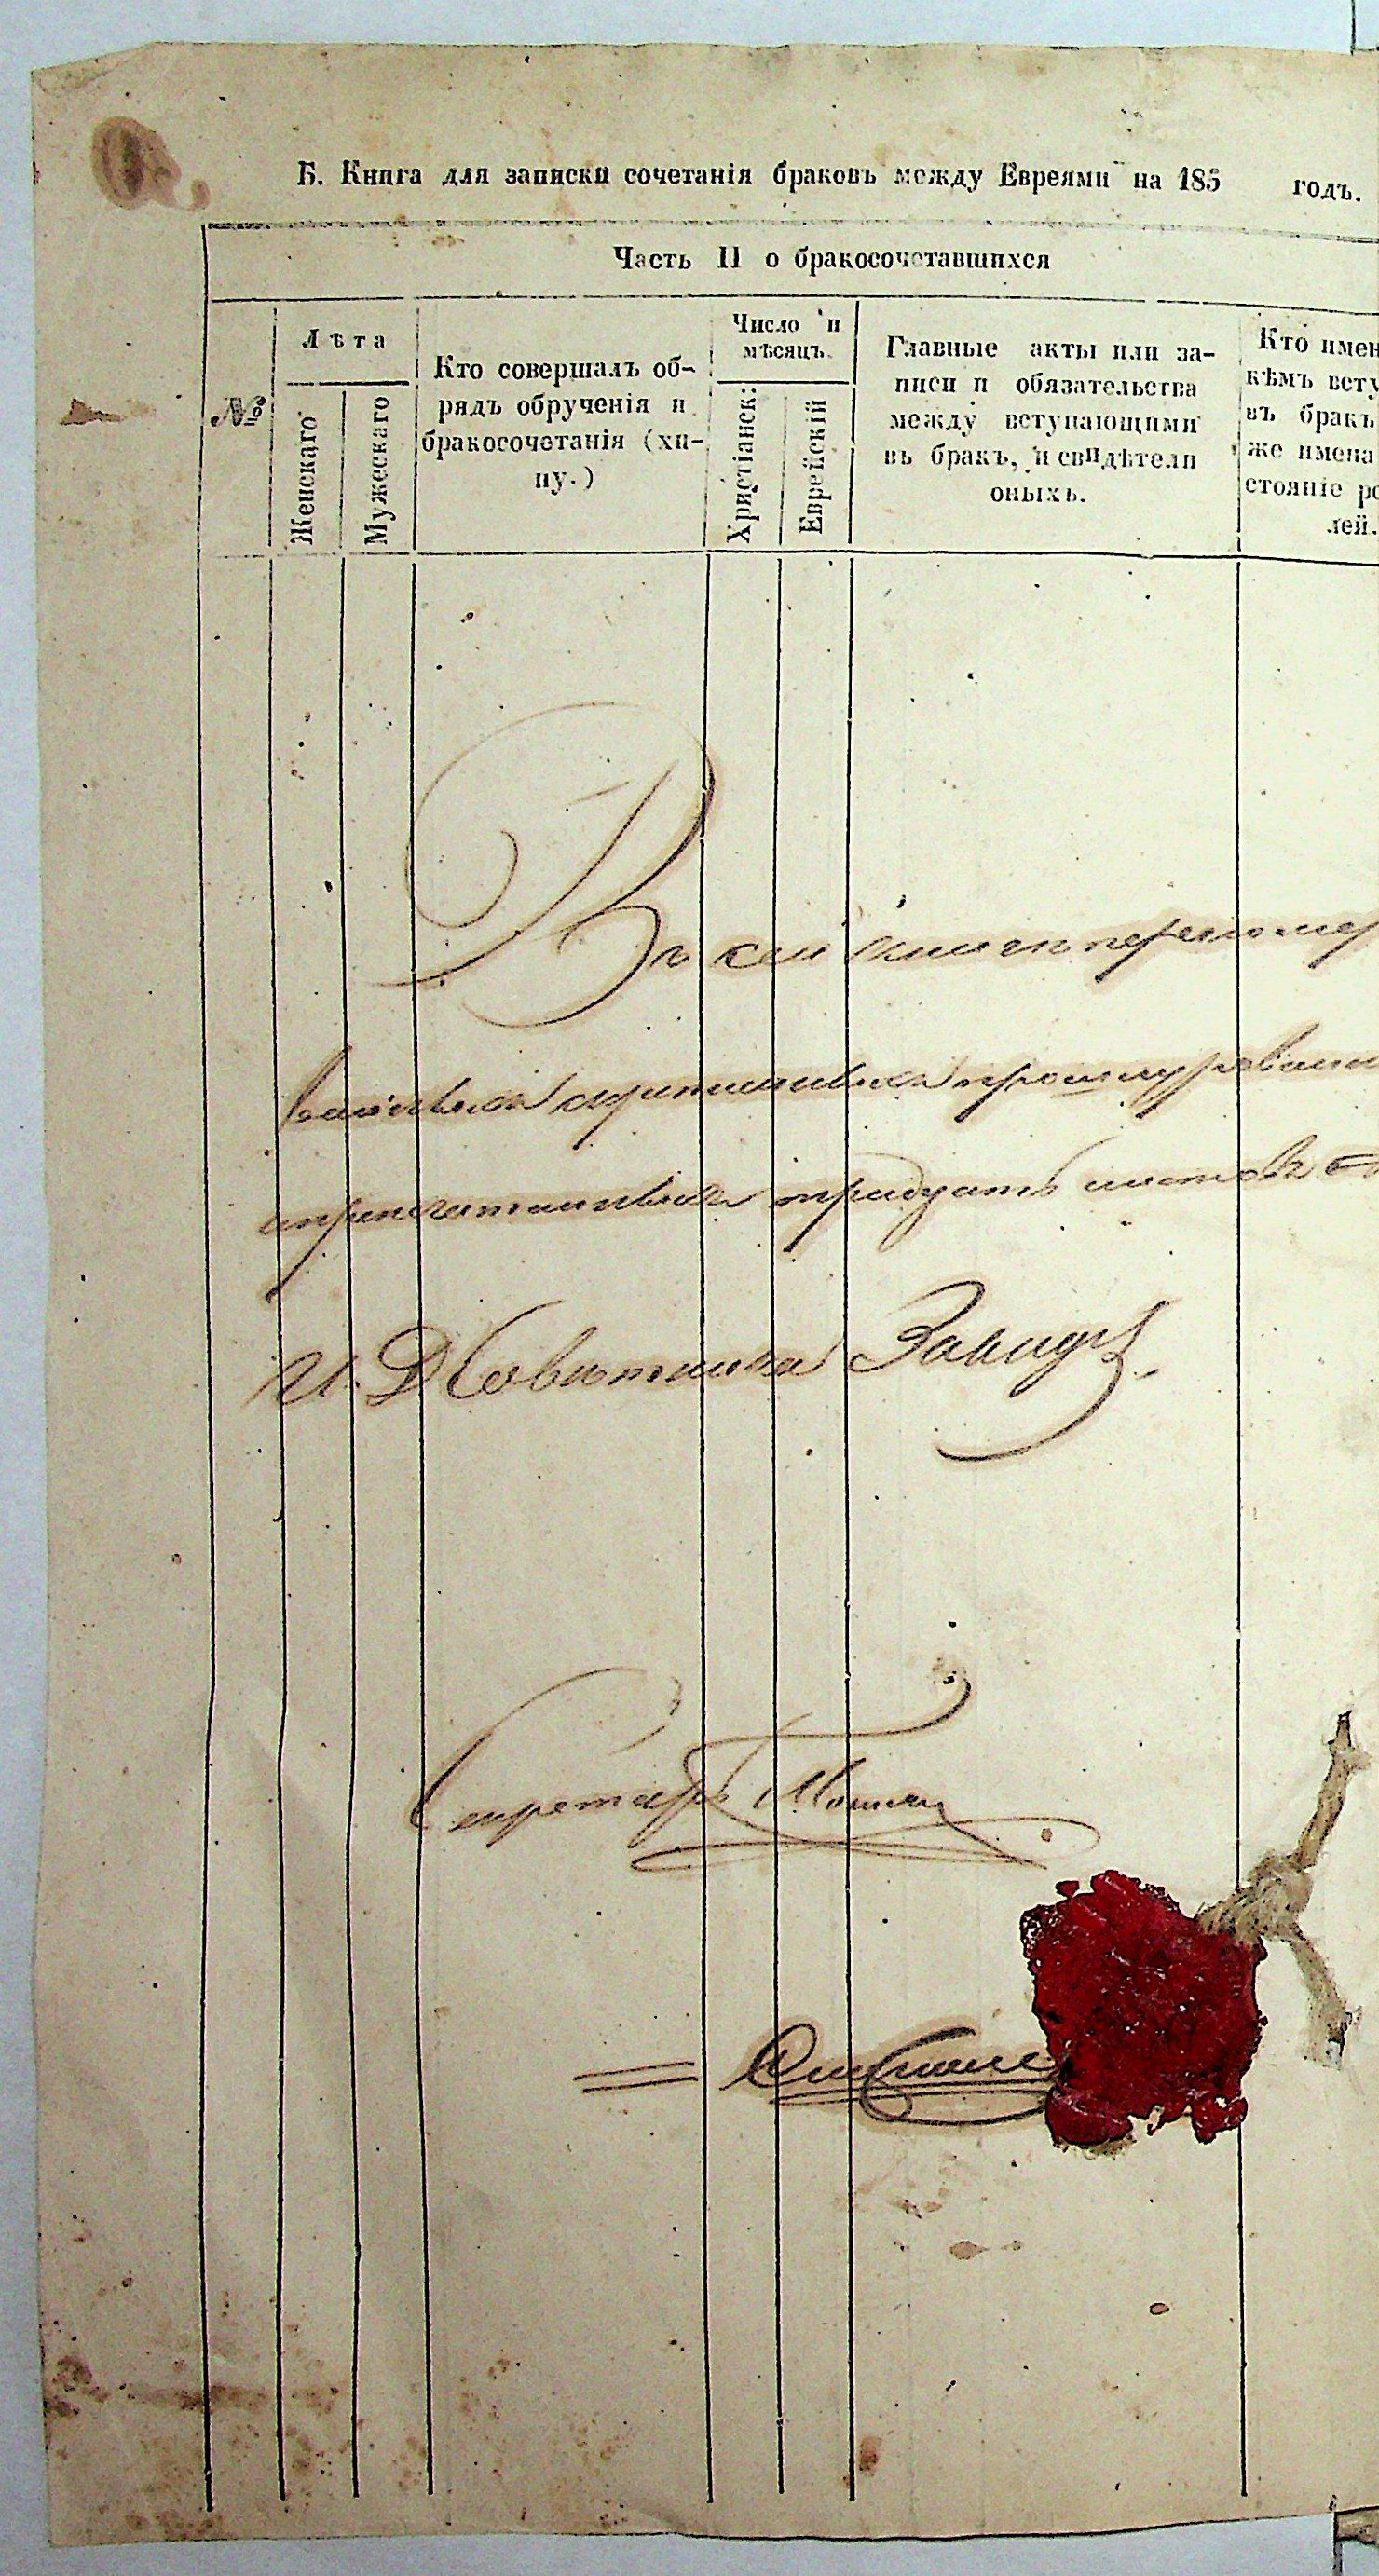 Б. Книга для записки сочетанія браковъ между Евреями на 185 годъ.
Часть II о бракосочетавшихся
№
Лѣта
Женскаго
Мужескаго
Кто совершалъ об-
рядъ обрученія и
бракосочетанія (хи-
пу.)
Число и
мѣсяцъ.
Христіанск:
Еврейскій
Главные акты или за-
писи и обязательства
между вступающими
въ бракъ, и свидѣтели
оныхъ.
Кто имен
кѣмъ всту
въ бракъ
же имена
стояніе ро
лей.
Въ сей книгѣ перенумеро
ванныхъ скрѣпленныхъ прошнурованн
припечатанныхъ тридцать листовъ
И. Д Совѣтника
Секретарь